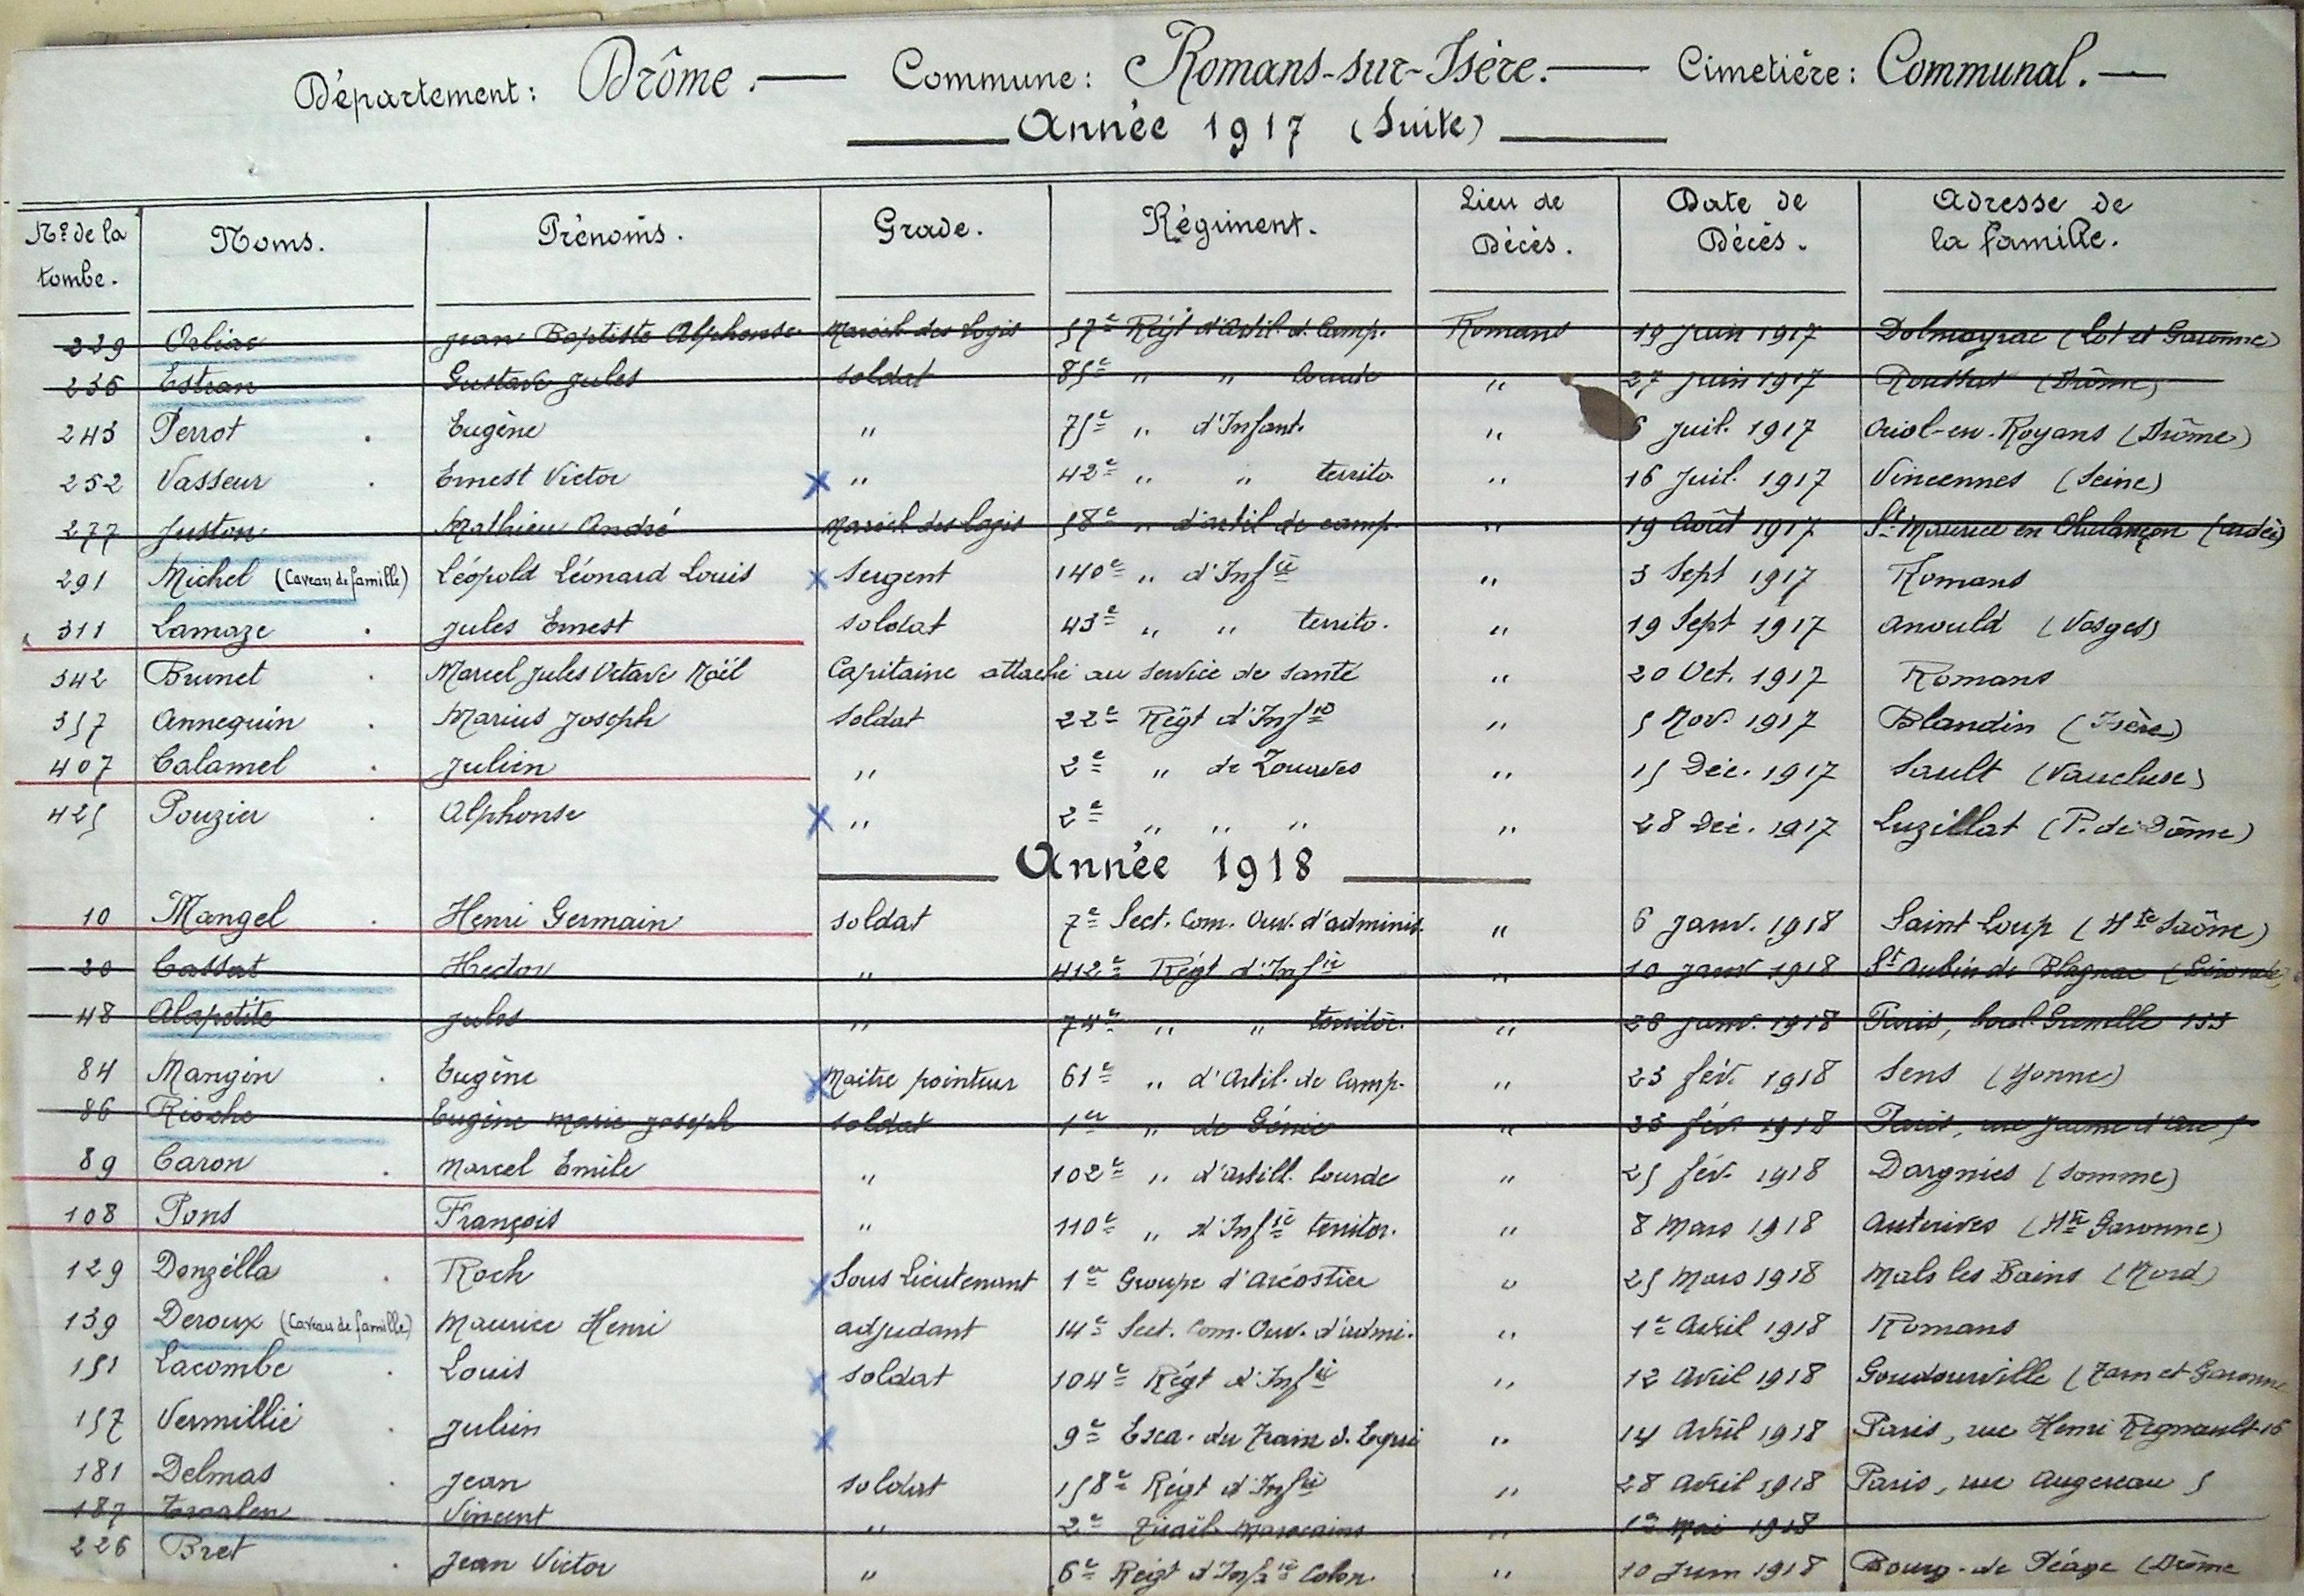 Département: Drôme. — Commune: Romans-sur-Isère. — Cimetière: Communal. —
Année 1917 (Suite)
N° de la tombe. Noms. Prénoms. Grade. Régiment. Lieu de Décès. Date de Décès. Adresse de la famille.
239 Orliac Jean Baptiste Alphonse Maréch des Logis 57e Régt d'Artil. d. Camp. Romans 19 Juin 1917 Dolmayrac (Lot et Garonne)
236 Estran Gustave Jules soldat 85e " " lourde " 27 Juin 1917 Roussas (Drôme)
243 Perrot . Eugène " 75e " d'Infant. " 6 Juil. 1917 Oriol-en-Royans (Drôme)
252 Vasseur . Ernest Victor x " 42e " " territo. " 16 Juil. 1917 Vincennes (Seine)
277 Juston Mathieu André Maréch des Logis 58e " d'artil de camp. " 19 Août 1917 St Maurice en Chalançon (Ardè)
291 Michel (Caveau de famille) Léopold Léonard Louis x Sergent 140e " d'Infie " 3 Sept 1917 Romans
311 Lamaze . Jules Ernest soldat 43e " " territo. " 19 Sept 1917 Anould (Vosges)
342 Brunet . Marcel Jules Octave Noël Capitaine attaché au service de santé " 20 Oct. 1917 Romans
357 Annequin . Marius Joseph soldat 22e Régt d'Infie " 5 Nov. 1917 Blandin (Isère)
407 Calamel . Julien " 2e " de Zouaves " 15 Déc. 1917 Sault (Vaucluse)
425 Pouzier . Alphonse x " 2e " " " " 28 Déc. 1917 Luzillat (P. de Dôme)
Année 1918
10 Mangel . Henri Germain soldat 7e Sect. Com. Ouv. d'adminis. " 6 Janv. 1918 Saint Loup (Hte Saône)
20 Cassat Hector " 412e Régt d'Infie " 10 Janv 1918 St Aubin de Blagnac (Gironde)
48 Alapetite Jules " 74e " " territor. " 28 Janv. 1918 Paris, boul. Grenelle 133
84 Mangin . Eugène x Maitre pointeur 61e " d'Artil. de Camp. " 23 fév. 1918 Sens (Yonne)
86 Rioche Eugène Marie Joseph soldat 1er " de Génie " 23 fév. 1918 Paris, rue Jeanne d'Arc 5
89 Caron . Marcel Emile " 102e " d'artill. lourde " 25 fév. 1918 Dargnies (Somme)
108 Pons François " 110e " d'Infie territor. " 8 Mars 1918 Auterives (Hte Garonne)
129 Donzélla . Roch x Sous Lieutenant 1er Groupe d'Aréostier " 25 Mars 1918 Malo les Bains (Nord)
139 Deroux (Caveau de famille) Maurice Henri adjudant 14e Sect. Com. Ouv. d'admi. " 1er Avril 1918 Romans
151 Lacombe . Louis x soldat 104e Régt d'Infie " 12 Avril 1918 Goudourville (Tarn et Garonne
157 Vermillié . Julien x 9e Esca. du Train d. Equi " 14 Avril 1918 Paris, rue Henri Regnault 16
181 Delmas . Jean soldat 158e Régt d'Infie " 28 Avril 1918 Paris, rue Augereau 5
187 Vincent " 2e Tirail. Marocains " 1er Mai 1918
226 Bret . Jean Victor " 6e Régt d'Infie Colon. " 10 Juin 1918 Bourg-de-Péage (Drôme